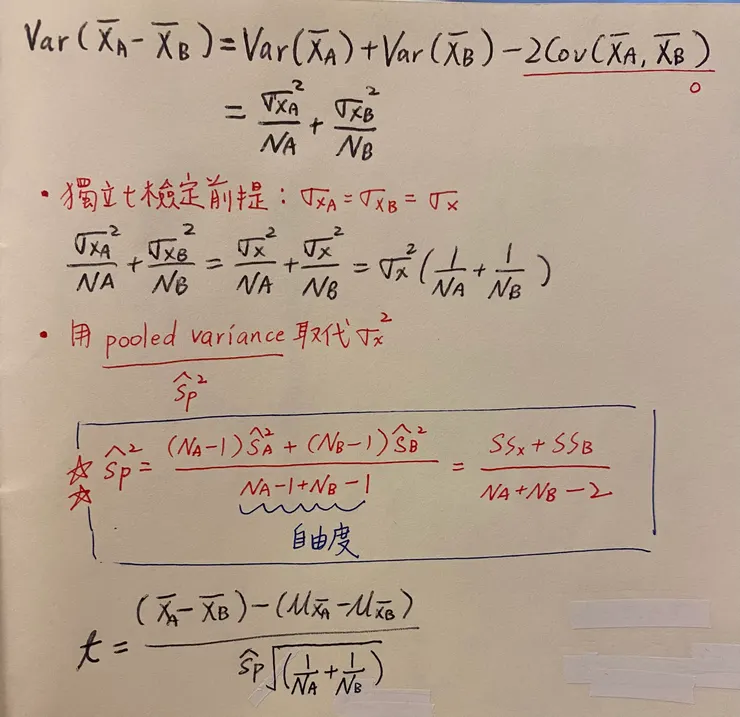 Var(X̄A - X̄B) = Var(X̄A) + Var(X̄B) - 2Cov(X̄A, X̄B)
0
= σXA²/NA + σXB²/NB
• 獨立t檢定前提: σXA = σXB = σX
σXA²/NA + σXB²/NB = σX²/NA + σX²/NB = σX²(1/NA + 1/NB)
• 用 pooled variance 取代 σX²
ŝp²
☆☆ ŝp² = (NA-1)ŝA² + (NB-1)ŝB² / NA-1+NB-1 = SSX + SSB / NA+NB-2
自由度
t = (X̄A - X̄B) - (μX̄A - μX̄B) / ŝp√(1/NA + 1/NB)